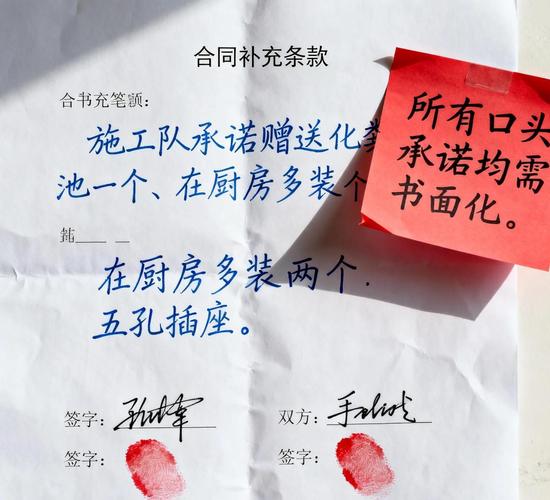 合同补充条款
施工队承诺赠送化
池一个、在厨房多装个
在厨房多装两个.
五孔插座。
签字:
双方:
签字:
签字:
所有口头
承诺均需
书面化。